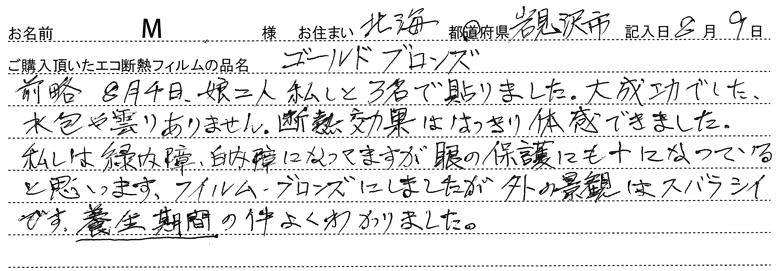 お名前 M 様 お住まい 北海 都道府県 岩見沢市 記入日 8 月 9 日
ご購入頂いたエコ断熱フィルムの品名 ゴールドブロンズ
前略 8月4日、娘二人 私しと3名で貼りました。大成功でした、
水包や雲りありません。断熱効果ははっきり体感できました。
私しは緑内障、白内障になってますが眼の保護にも十になっている
と思います、フイルム-ブロンズにしましたが外の景観はスバラシイ
です、養生期間の件よくわかりました。